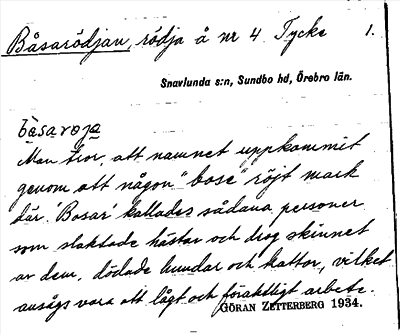 Båsarödjan, rödja å nr 4 Tycke 1.
Snavlunda s:n, Sundbo hd, Örebro län.
båsarøja
Man tror, att namnet uppkommit
genom att någon "bose" röjt mark
där. 'Bosar' kallades sådana personer
som slaktade hästar och drog skinnet
av dem, dödade hundar och kattor, vilket
ansågs vara ett lågt och föraktligt arbete.
GÖRAN ZETTERBERG 1934.